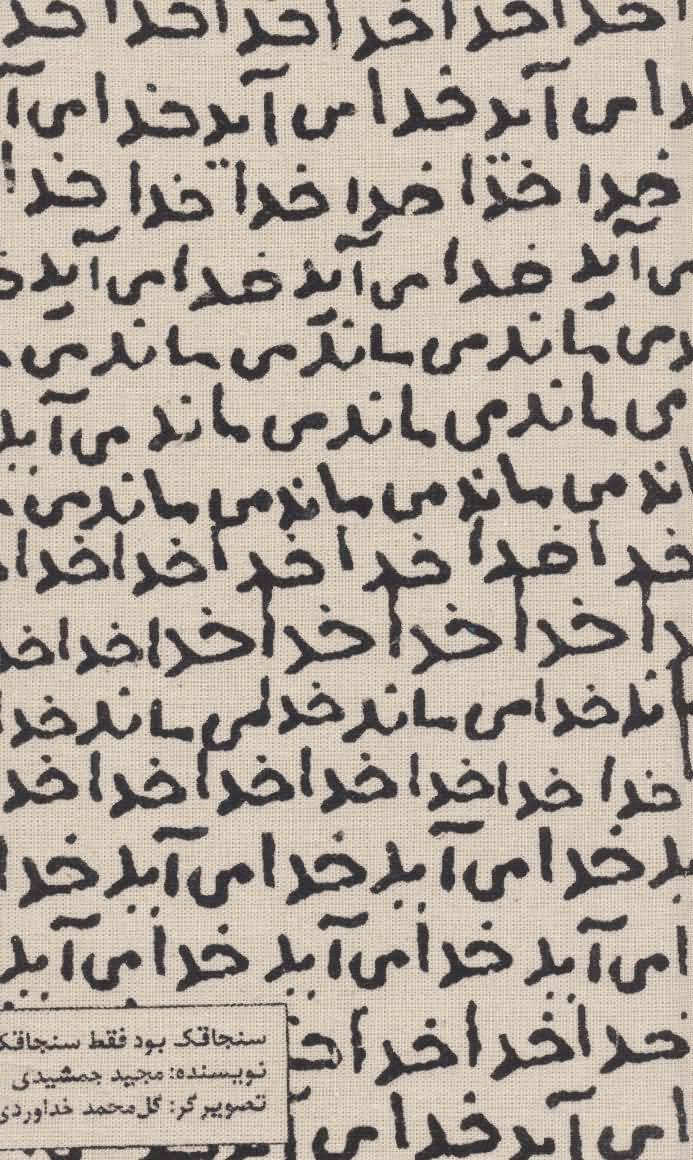 ا خدا خدا خدا خدا خدا خد
ا می آید خدا می آید خدا می آ
خدا خدا خدا خدا خدا خدا
می آید خدا می آید خدا می آید
می ماند می ماند می ماند می
می ماند می ماند می ماند می آید
اند می ماند می ماند می ماند می
خدا خدا خدا خدا خدا خدا
ا خدا خدا خدا خدا خدا خد
ماند خدا می ماند خدا می ماند خدا
خدا خدا خدا خدا خدا خدا خد
ید خدا می آید خدا می آید خدا
ا می آید خدا می آید خدا می آید
خدا خدا خدا خد
ا می آید خدا می
سنجاقک بود فقط سنجاقک
نویسنده: مجید جمشیدی
تصویرگر: گل‌محمد خداوردی